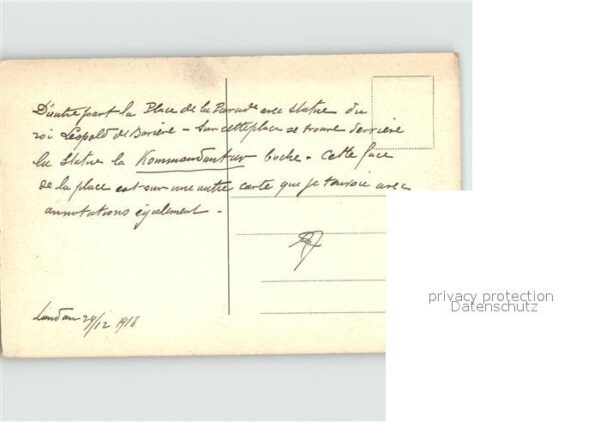 D'autre part la Place de la Parade avec statue du
roi Léopold de Bavière - Sur cette place se trouve derrière
la statue la Kommandantur boche. Cette face
de la place est sur une autre carte que je t'envoie avec
annotations également.
Landau 24/12 1918
privacy protection
Datenschutz